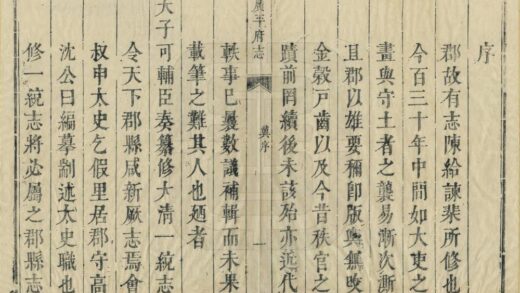 序
郡故有志陳給諫棐所修也
今百三十年中間如大吏之
畫與守土者之襲易漸次漸
且郡以雄要稱卽版輿無攺
金穀戶齒以及今昔秩官之
蹟前罔續後未該殆亦近代
廣平府志
冀序
一
軼事已屢數議補輯而未果
載筆之難其人也廼者
天子可輔臣奏纂修大清一統志
令天下郡縣咸新厥志焉會
叔申太史乞假里居郡守高
沈公曰編摹剬述太史職也
修一統志將必屬之郡縣志